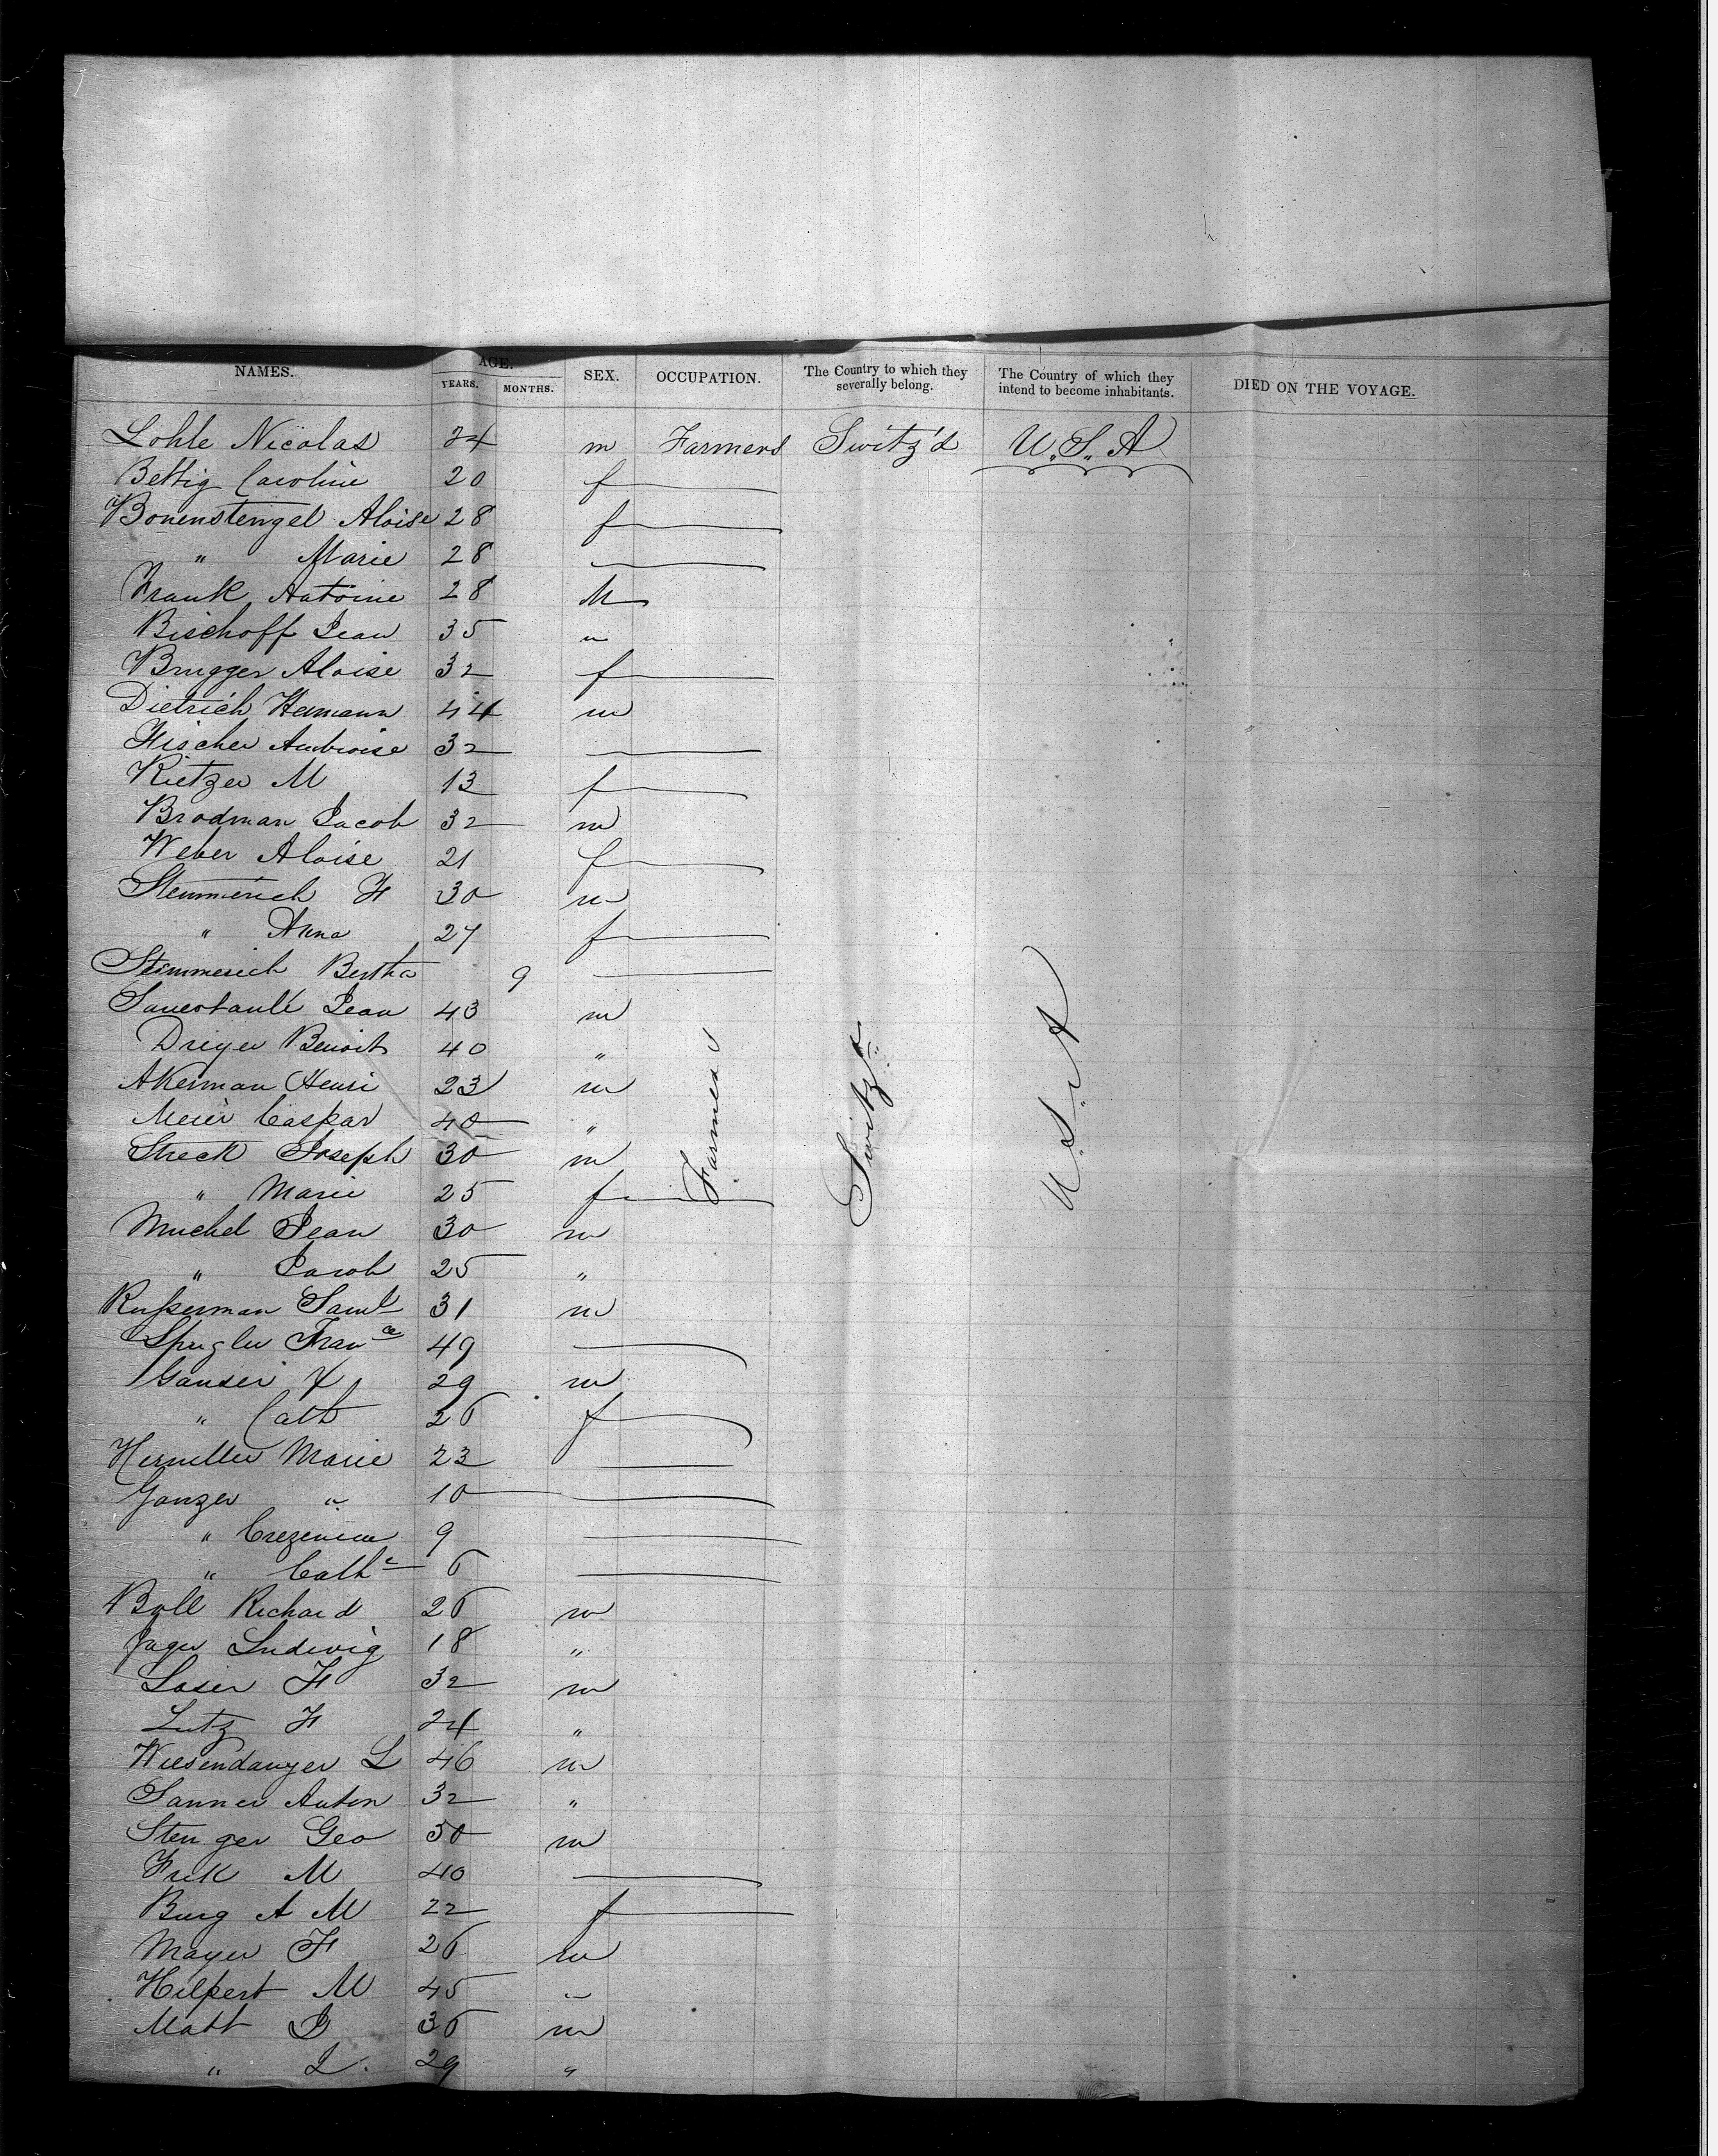 NAMES. AGE. YEARS. MONTHS. SEX. OCCUPATION. The Country to which they severally belong. The Country of which they intend to become inhabitants. DIED ON THE VOYAGE.
Lohle Nicolas 24 m Farmers Switz'd U.S.A
Bettig Caroline 20 f
Bonenstengel Aloise 28 f
" Marie 28
Frank Antoine 28 M
Bischoff Jean 35 "
Brugger Aloise 32 f
Dietrich Hermann 44 m
Fischer Ambroise 32
Kietzer M 13 f
Brodman Jacob 32 m
Weber Aloise 21 f
Stemmerich F 30 m
" Anna 27 f
Stemmerich Bertha 9
Jean 43 m
Dreyer Benoit 40 "
Akerman Henri 23 m
Meier Caspar 40 "
Streck Joseph 30 m
" Marie 25 f
Muchel Jean 30 m
" Jacob 25 "
Saml 31 m
49
X 29 m
" Cath 26 f
Marie 23
Ganzer " 10
" 9
" Cathe 6
Boll Richard 26 m
Jager Ludwig 18 "
Laser F 32 m
Lutz F 24 "
Wiesendanger L 46 m
Sanner Anton 32 "
Stenger Geo 50 m
Frik M 40
Burg A M 22 f
Mayer F 26 m
Hilpert M 45 "
Matt J 36 m
" L. 29 "
Farmers
Switz'd
U.S.A